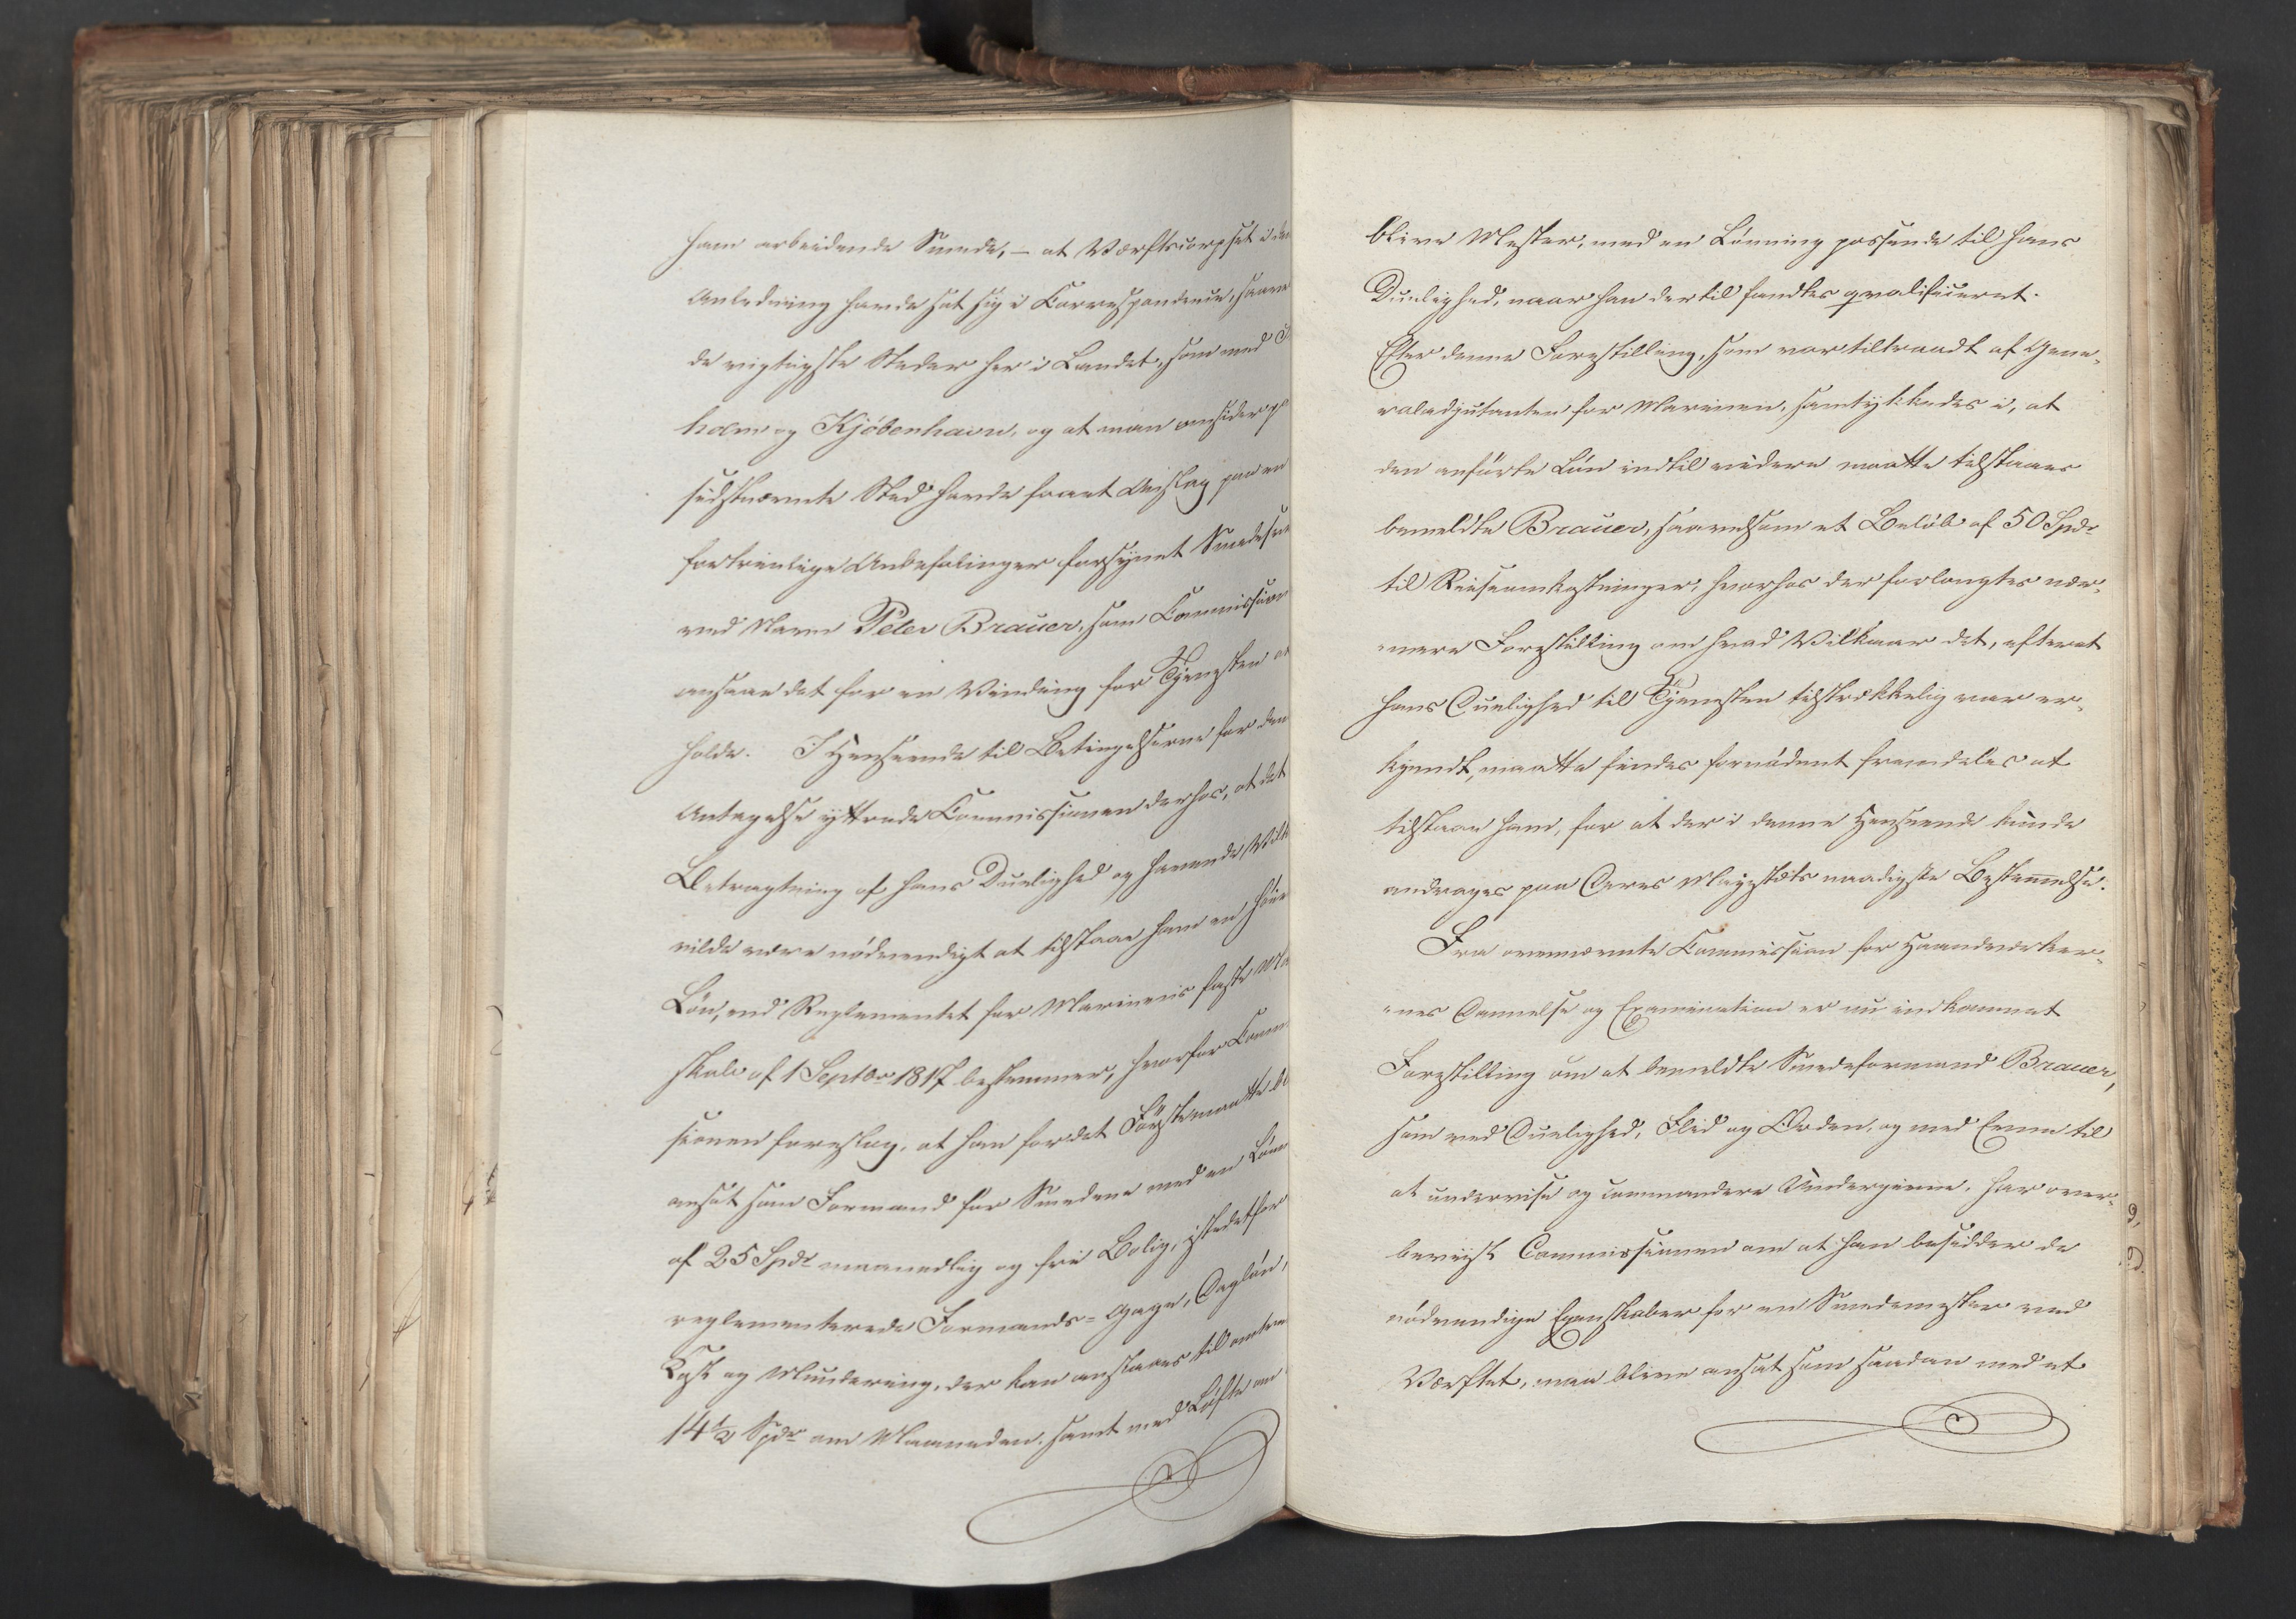 ham arbeidende Smede, – at Værftscorpset i den
Anledning havde sat sig i Correspondence, saavel
de vigtigste Steder her i Landet, som med
holm og Kjøbenhavn, og at man omsider
sidstnævnte Sted havde faaet Anslag paa en
fortrinlige Anbefalinger forsynet
ved Navn Peter Brauer, som Commission
ansaae det for en Vinding for Tjenesten at
holde. I Henseende til Betingelserne for den
Antagelse yttrede Commissionen derhos, at det
Betragtning af hans Duelighed og havende Vilk
vilde være nødvendigt at tilstaae ham en høie
Løn, end Reglementet for Marinens faste
skab af 1 Septbr 1817 bestemmer, hvorfor Comm
sionen foreslog, at han for det Første maatte bl
ansat som Formand for Smedene med en Løn
af 25 Spdr maanedlig og frie Bolig, istedetfor
reglementerede Formands-Gage, Dagløn,
Kost og Mundering, der kan anslaaes til omtren
14½ Spdr om Maaneden, samt med Løfte om
blive Mester, med en Lønning passende til hans
Duelighed, naar han dertil fandtes qvalificeret.
Efter denne Forestilling, som var tiltraadt af Gene-
raladjutanten for Marinen, samtykkedes i, at
den anførte Løn indtil videre maatte tilstaaes
bemeldte Brauer, saavelsom et Beløb af 50 Spdr
til Reiseomkostninger, hvorhos der forlangtes nær-
-mere Forestilling om hvad Vilkaar det, efterat
hans Duelighed til Tjenesten tilstrækkelig var er-
kjendt, maatte findes fornødent fremdeles at
tilstaae ham, for at der i denne Henseende kunde
andrages paa Deres Majestæts naadigste Bestemmelse.
Fra ovennævnte Commission for Haandværker-
-nes Dannelse og Examination er nu indkommet
Forestilling om at bemeldte Smedeformand Brauer,
som ved Duelighed, Flid og Orden, og med Evne til
at undervise og commandere Undergivne, har over-
beviist Commissionen om at han besidder de
nødvendige Egenskaber for en Smedemester ved
Værftet, maa blive ansat som saadan med et